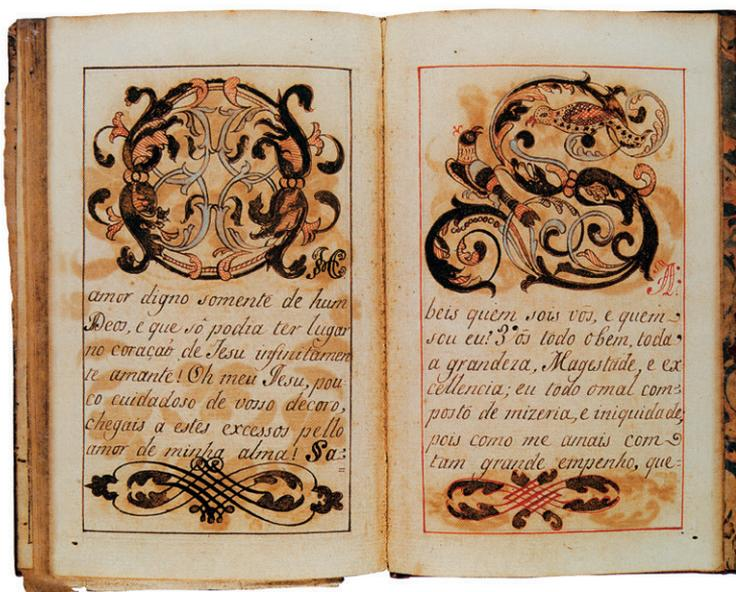 OH
amor digno somente de hum
Deos, e que só podia ter lugar
no coração de Jesu infinitamen
te amante! Oh meu Jesu, pou
co cuidadoso de vosso decoro,
chegais a estes excessos pello
amor de minha alma! Sa=
SA:
beis quem sois vos, e quem
sou eu? Vós todo o bem, toda
a grandeza, Magestade, e ex
cellencia; eu todo o mal com=
posto de mizeria, e iniquidade,
pois como me amais com
tam grande empenho, que=